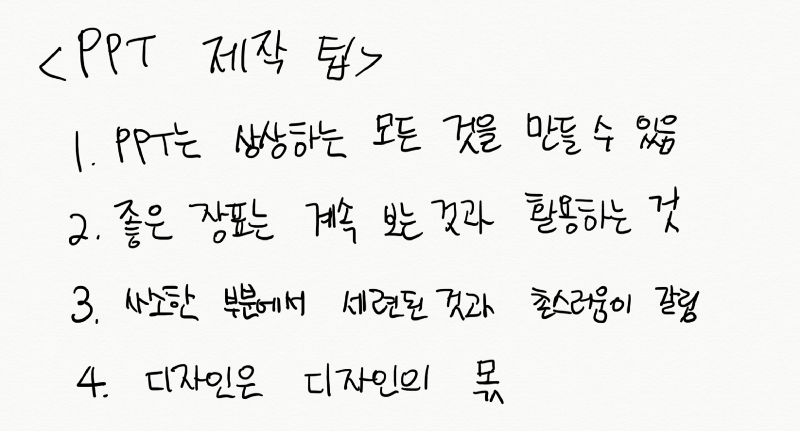 <PPT 제작 팁>
1. PPT는 상상하는 모든 것을 만들 수 있음
2. 좋은 장표는 계속 보는 것과 활용하는 것
3. 사소한 부분에서 세련된 것과 촌스러움이 갈림
4. 디자인은 디자인의 몫